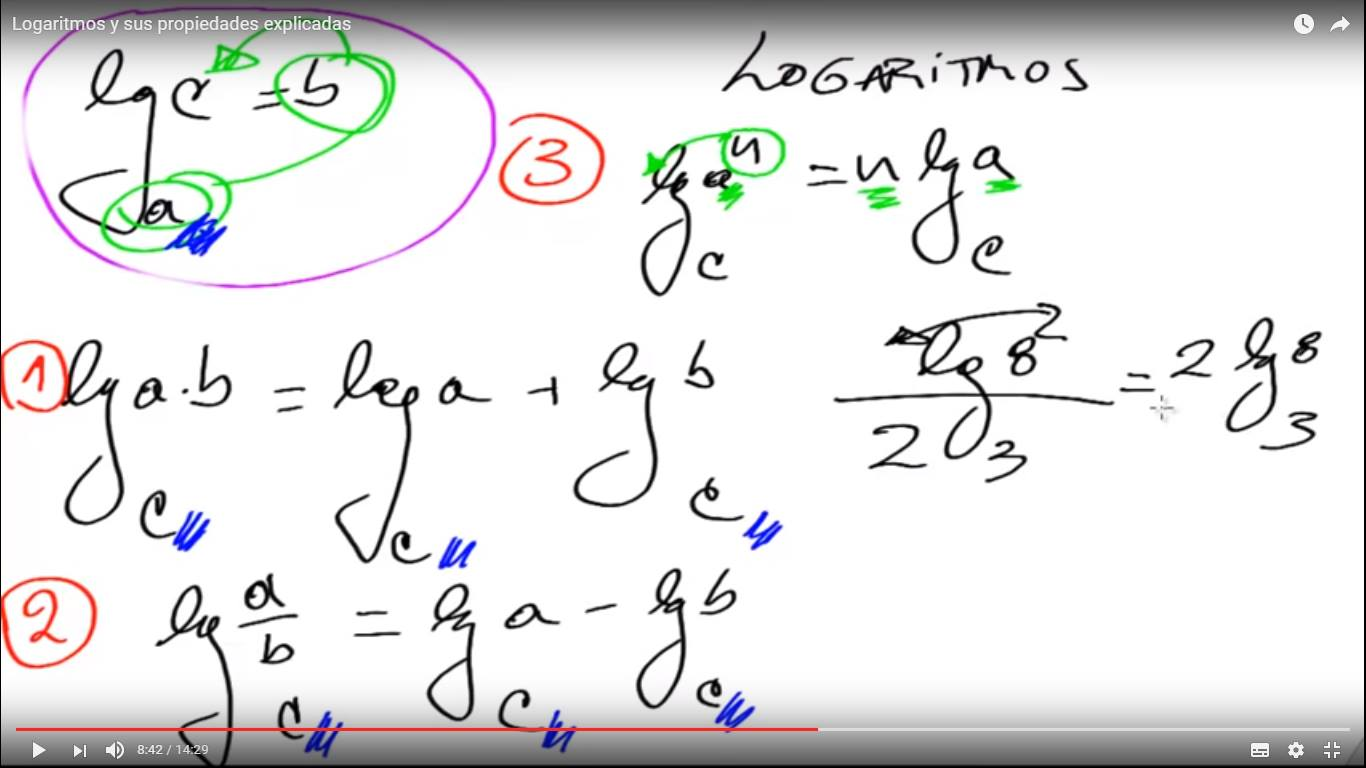 Logaritmos y sus propiedades explicadas
LOGARITMOS
lg_a c = b
3 lg_c a^n = n lg_c a
1 lg_c a·b = log_c a + lg_c b
lg_3 8^2 / 2 = 2 lg_3 8
2 lg_c a/b = lg_c a - lg_c b
8:42 / 14:29